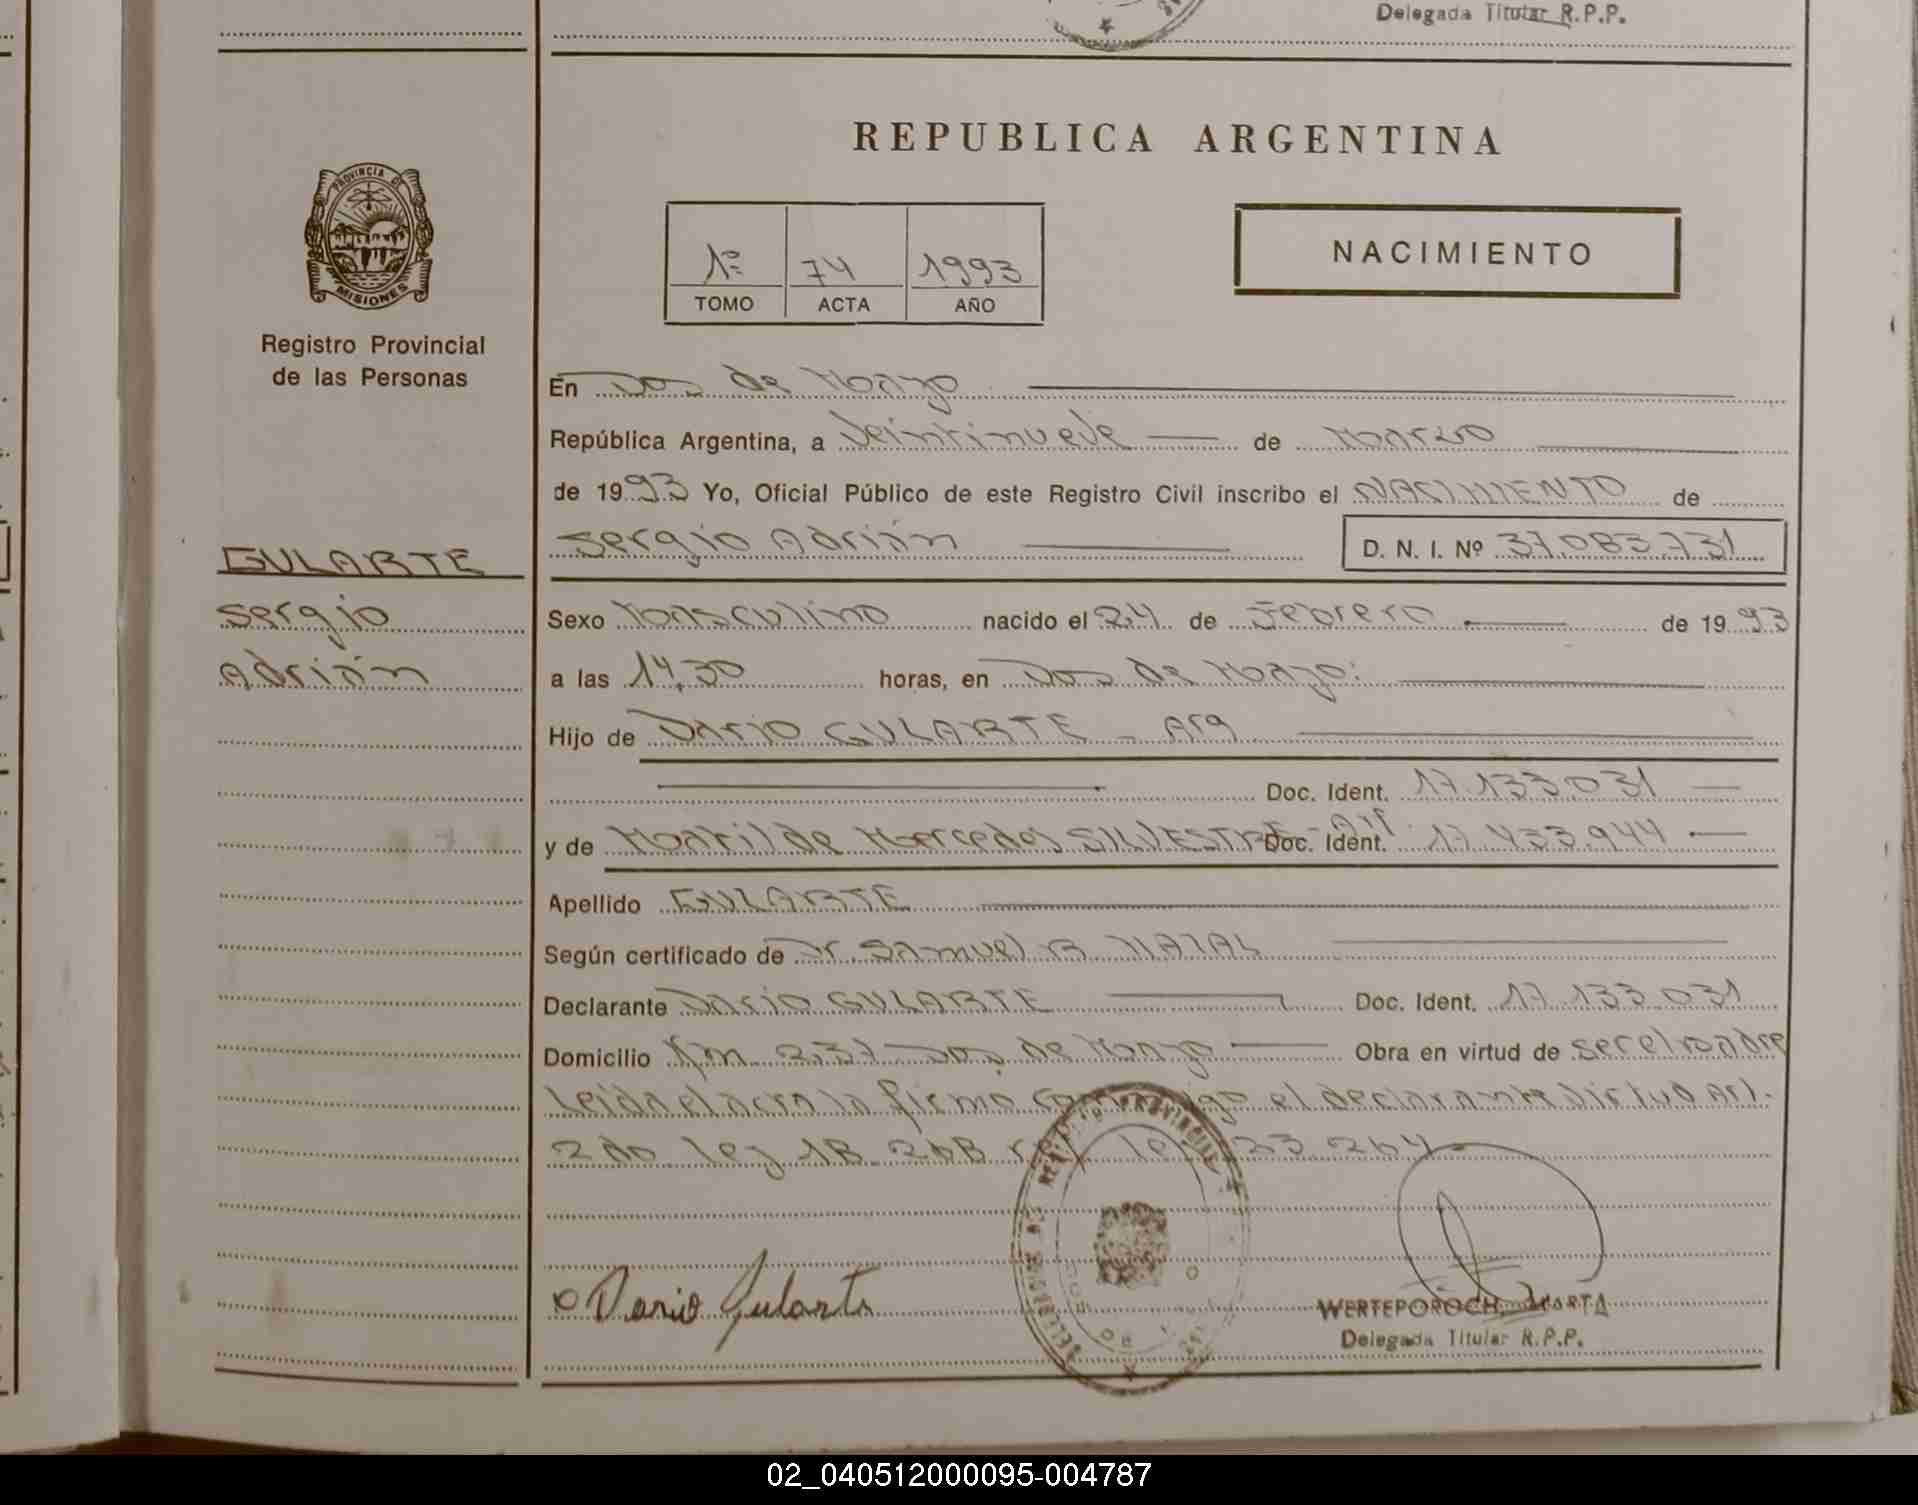 Delegada Titular R.P.P.
REPUBLICA ARGENTINA
PROVINCIA DE
MISIONES
Registro Provincial
de las Personas
1º 74 1993
TOMO ACTA AÑO
NACIMIENTO
En Dos de Mayo
República Argentina, a Veintinueve de Marzo
de 1993 Yo, Oficial Público de este Registro Civil inscribo el NACIMIENTO de
Sergio Adrián D. N. I. Nº 37.083.731
GULARTE
Sergio
Adrián
Sexo Masculino nacido el 24 de Febrero de 1993
a las 14,30 horas, en Dos de Mayo
Hijo de Dario GULARTE - Arg
Doc. Ident. 17.133.031
y de Matilde Mercedes SILVESTRE - Arg Doc. Ident. 17.433.944
Apellido GULARTE
Según certificado de Dr. Samuel B.
Declarante Dario GULARTE Doc. Ident. 17.133.031
Domicilio Km 237 Dos de Mayo Obra en virtud de ser el padre
Leida el acta la firma el declarante Art.
2do ley 18.248 23.264
Dario Gularte
WERTEPOROCH, MARTA
Delegada Titular R.P.P.
02_040512000095-004787